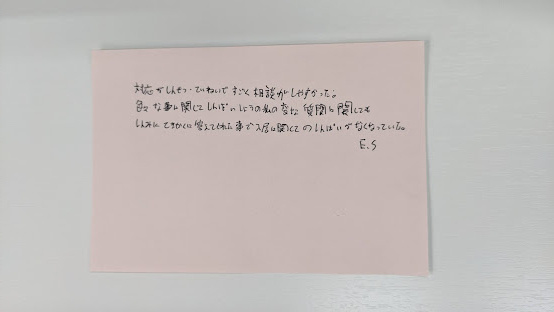 対応がしんせつ・ていねいですごく相談がしやすかった。
色々な事に関してしんぱいしょうの私の変な質問に関しても
しんみにこまかくに答えてくれた事で入居に関してのしんぱいがなくなっていた。
E.S